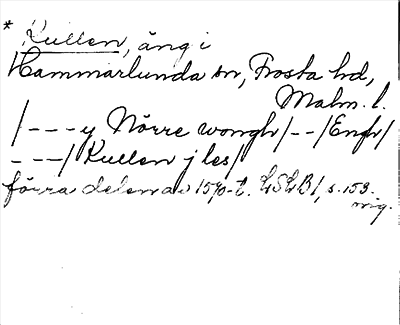 * Kullen, äng i
Hammarlunda sn, Frosta hd,
Malm. l.
/---y Nörre wongh/--/Engh/
---/ Kullen j les/
förra delen av 1570-t. LSLB1, s. 153.
orig.